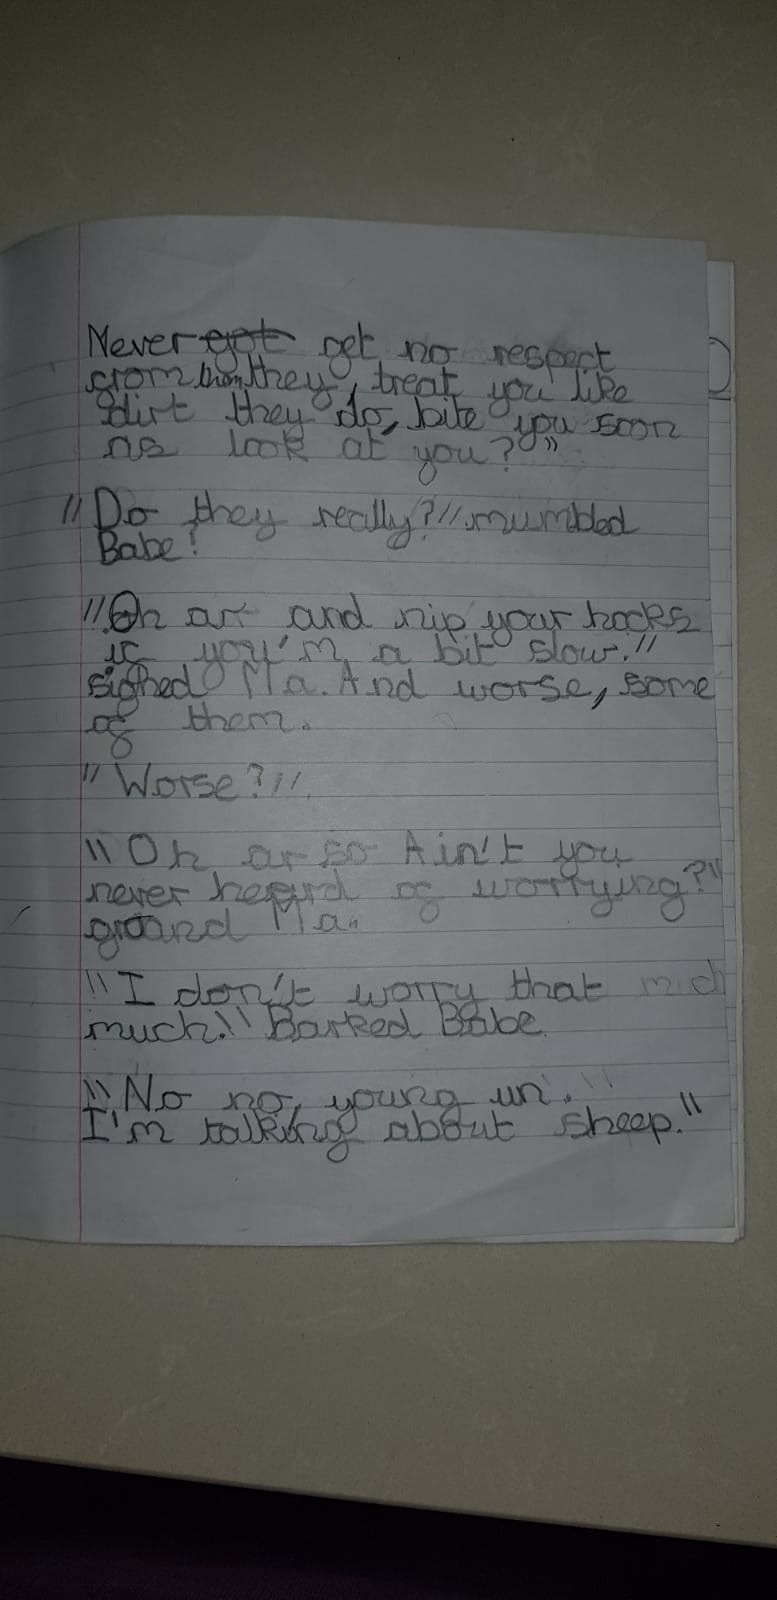 Never got get no respect
from them, they, treat you like
dirt they do, bite you soon
as look at you?"
"Do they really?" mumbled
Babe!
"Oh ar and nip your hocks
if you'm a bit slow."
sighed Ma. And worse, some
of them.
"Worse?"
"Oh ar so Ain't you
never heard of worrying?"
groand Ma.
"I don't worry that
much." Barked Babe.
"No no, young un."
I'm talking about sheep."